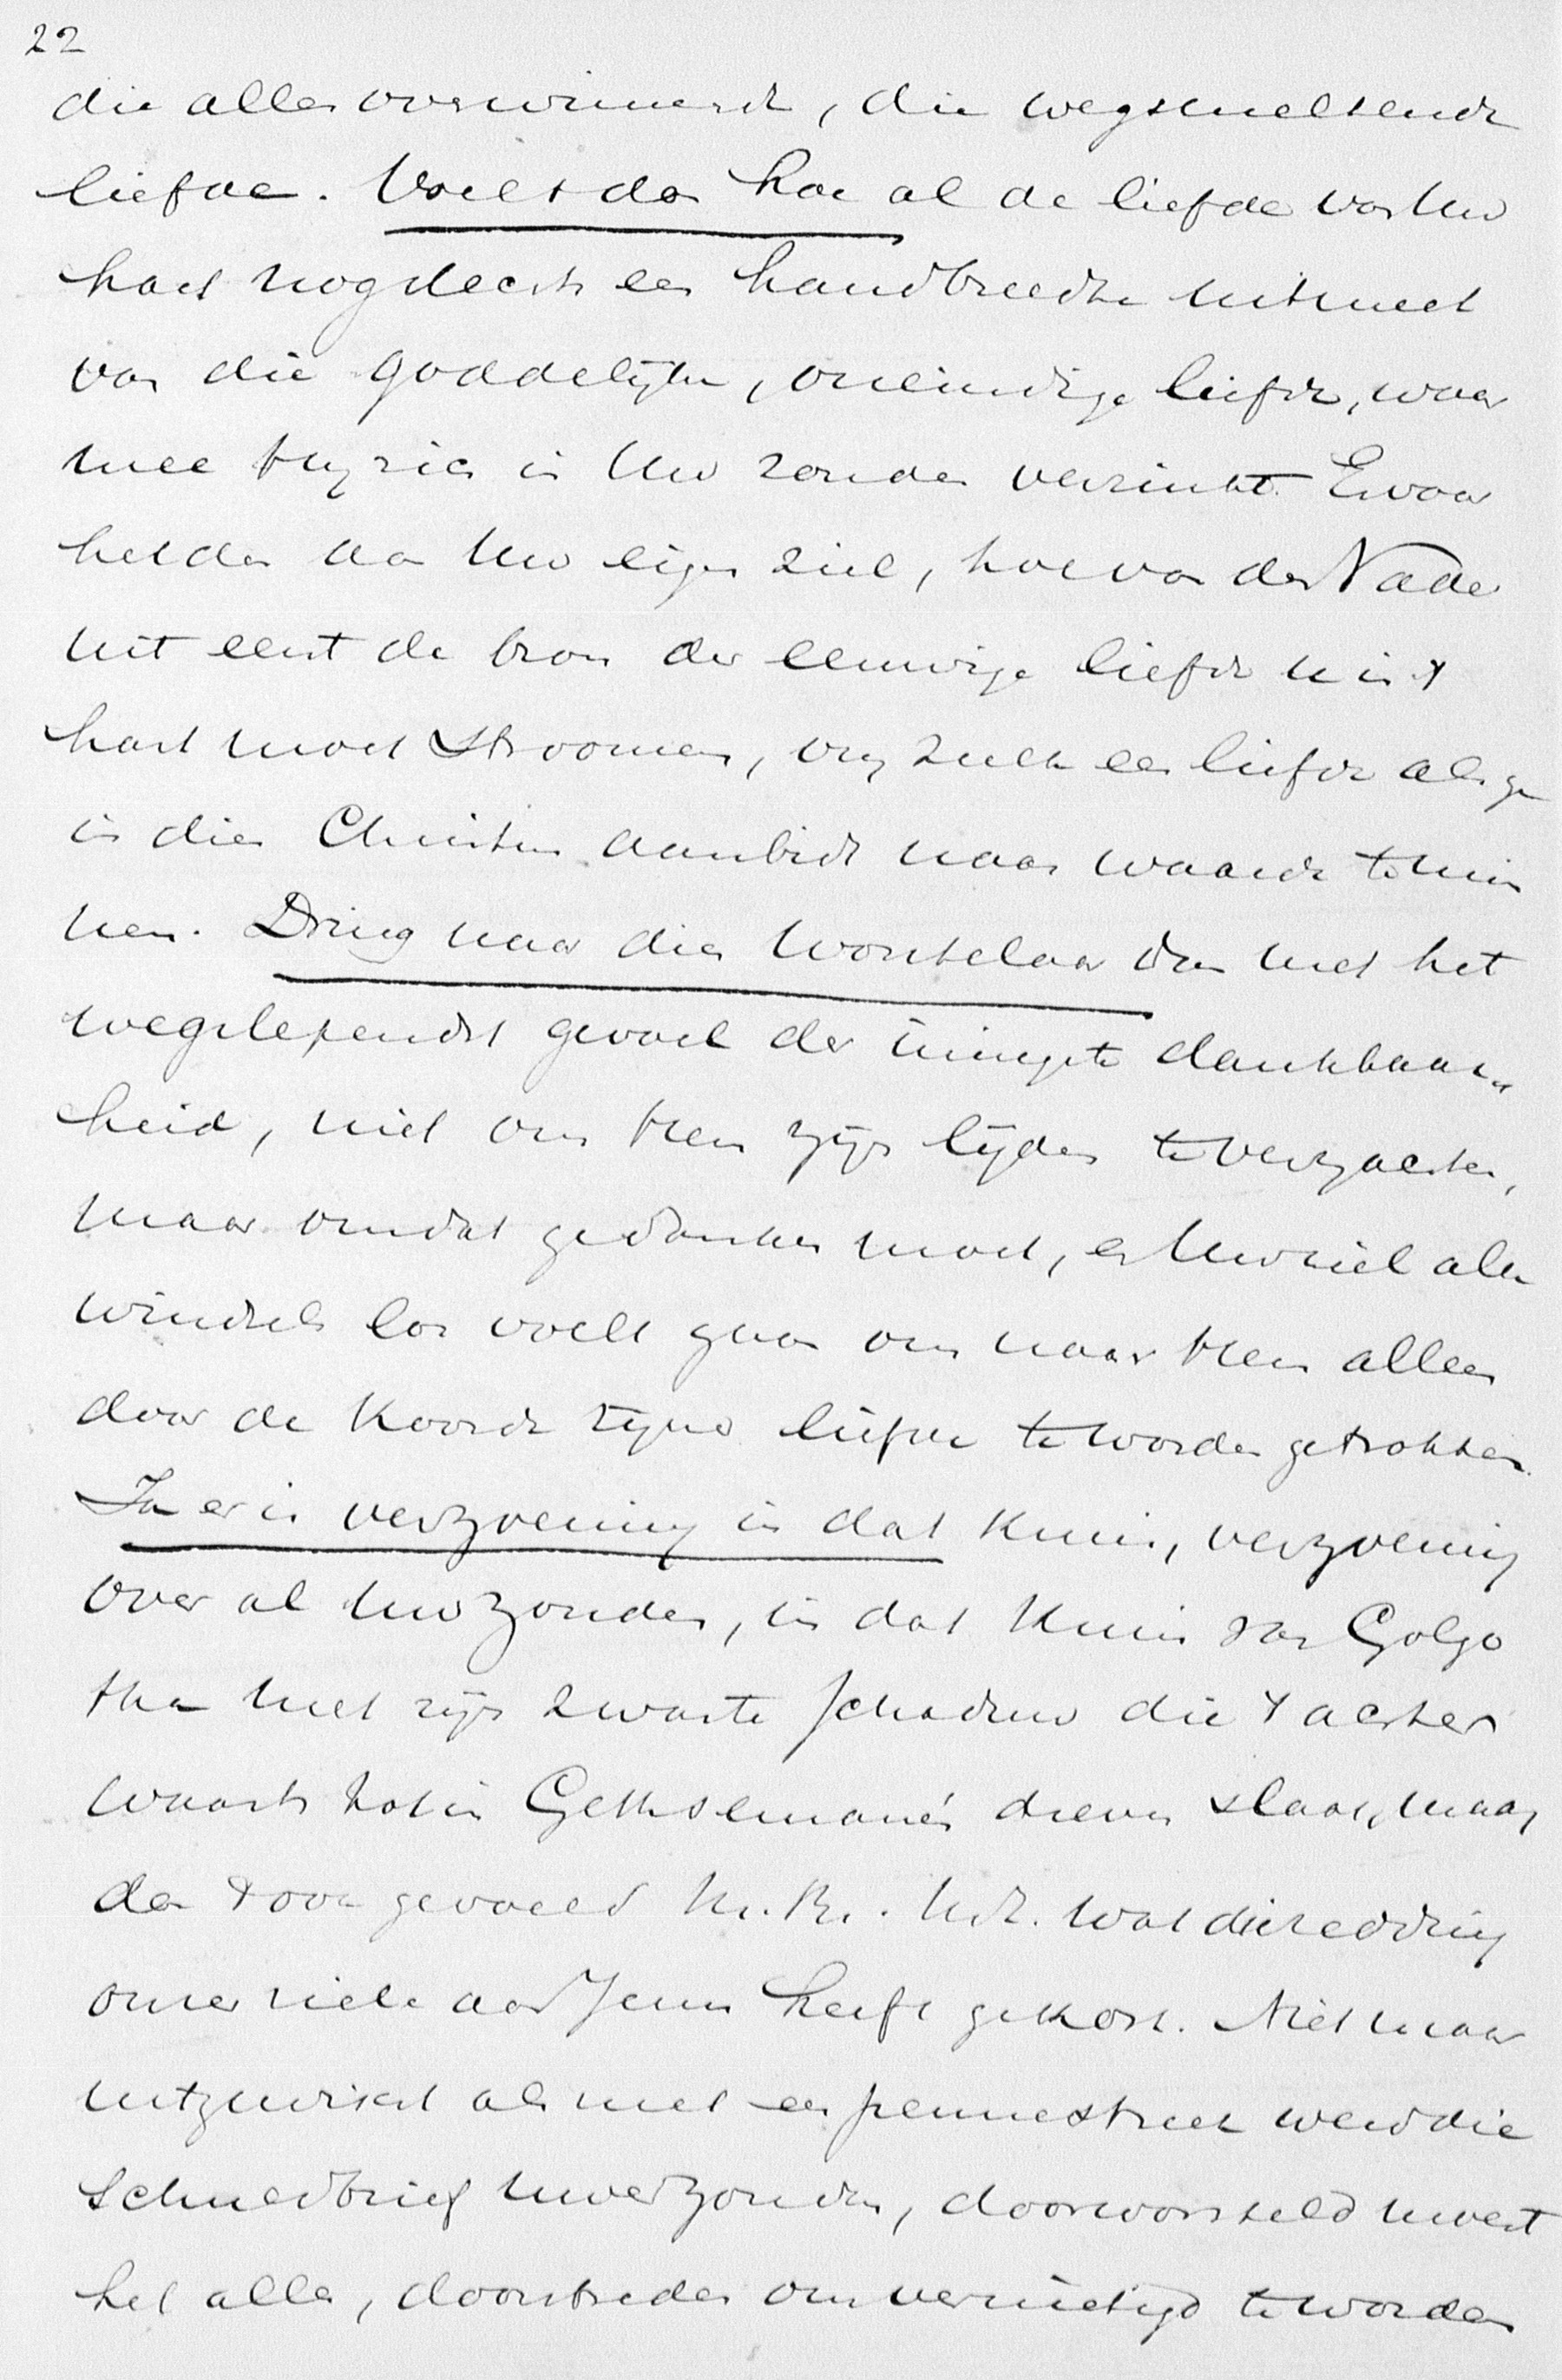 22
die alles overwinnende, die wegsmeltende
liefde. Voelt dan hoe al de liefde van Uw
hart nog slechts een handbreedte uitmeet
van die goddelijke, oneindige liefde, waar
mee Hij zich in Uw zonden verzinkt. Ervaar
het dan aan Uw eigen ziel, hoe van den Vader
uit eerst de bron der eeuwige liefde u in 't
hart moet stroomen, om zulk een liefde als ge
in dien Christus aanbidt naar waarde te min
nen. Dring naar dien Worstelaar dan met het
wegslepends gevoel der innigste dankbaar„
heid, niet om Hem zijn lijden te verzachten,
maar omdat ge danken moet, en Uw ziel alle
windsels los voelt gaan om naar Hem alleen
door de koorde zijner liefde te worden getrokken.
Ja er is verzoening in dat kruis, verzoening
over al Uw zonden, in dat kruis van Golgo
tha met zijn zwarte schaduw die 't achter
waarts tot in Gethsemané's dreven slaat, maar
dan 't ook gevoeld M. Br. M. Z. wat die redding
onzer ziele aan Jezus heeft gekost. Niet maar
uitgewischt als met een pennestreek werd die
schuldbrief uwer zonden, doorworsteld moest
het alles, doorstreden om vernietigd te worden